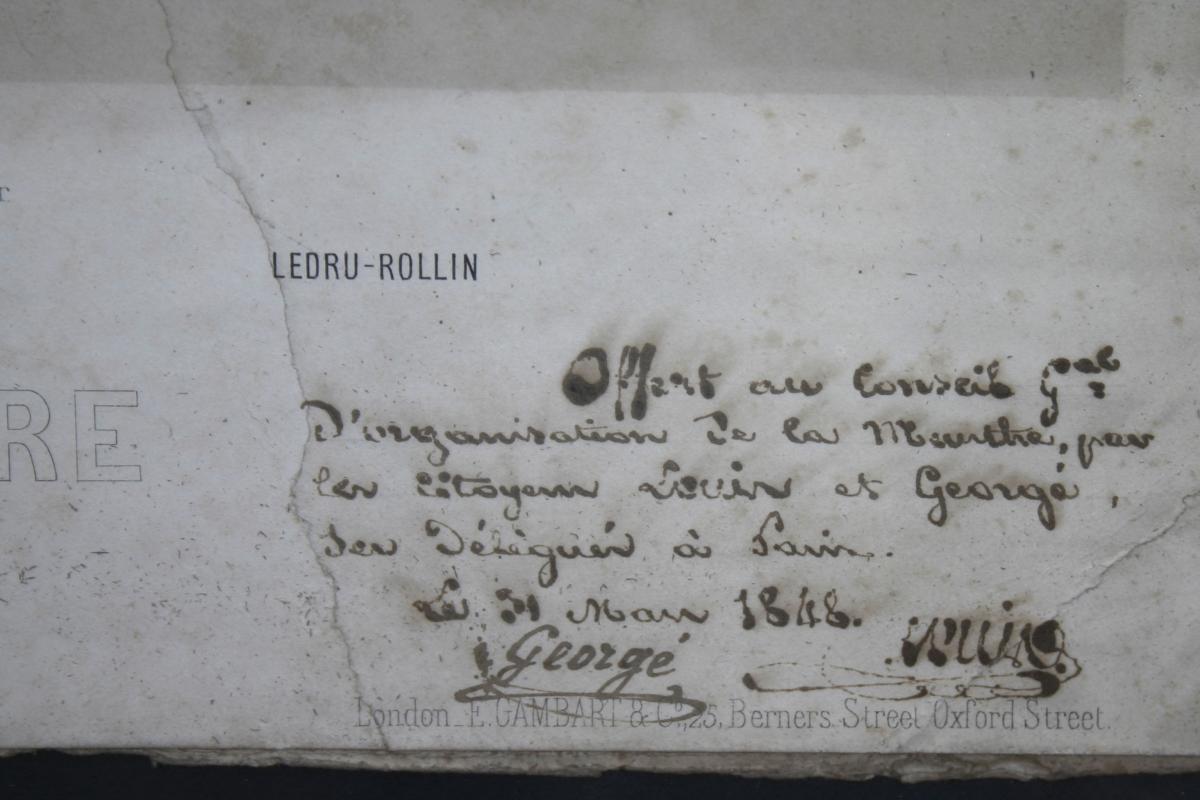 r
LEDRU-ROLLIN
RE
Offert au Conseil Gral
D'organisation de la Meurthe, par
les Citoyens Louis et Georgé,
ses Délégués à Paris.
Le 31 Mars 1848.
Georgé Louis
London_E. GAMBART & Co., 25, Berners Street Oxford Street.